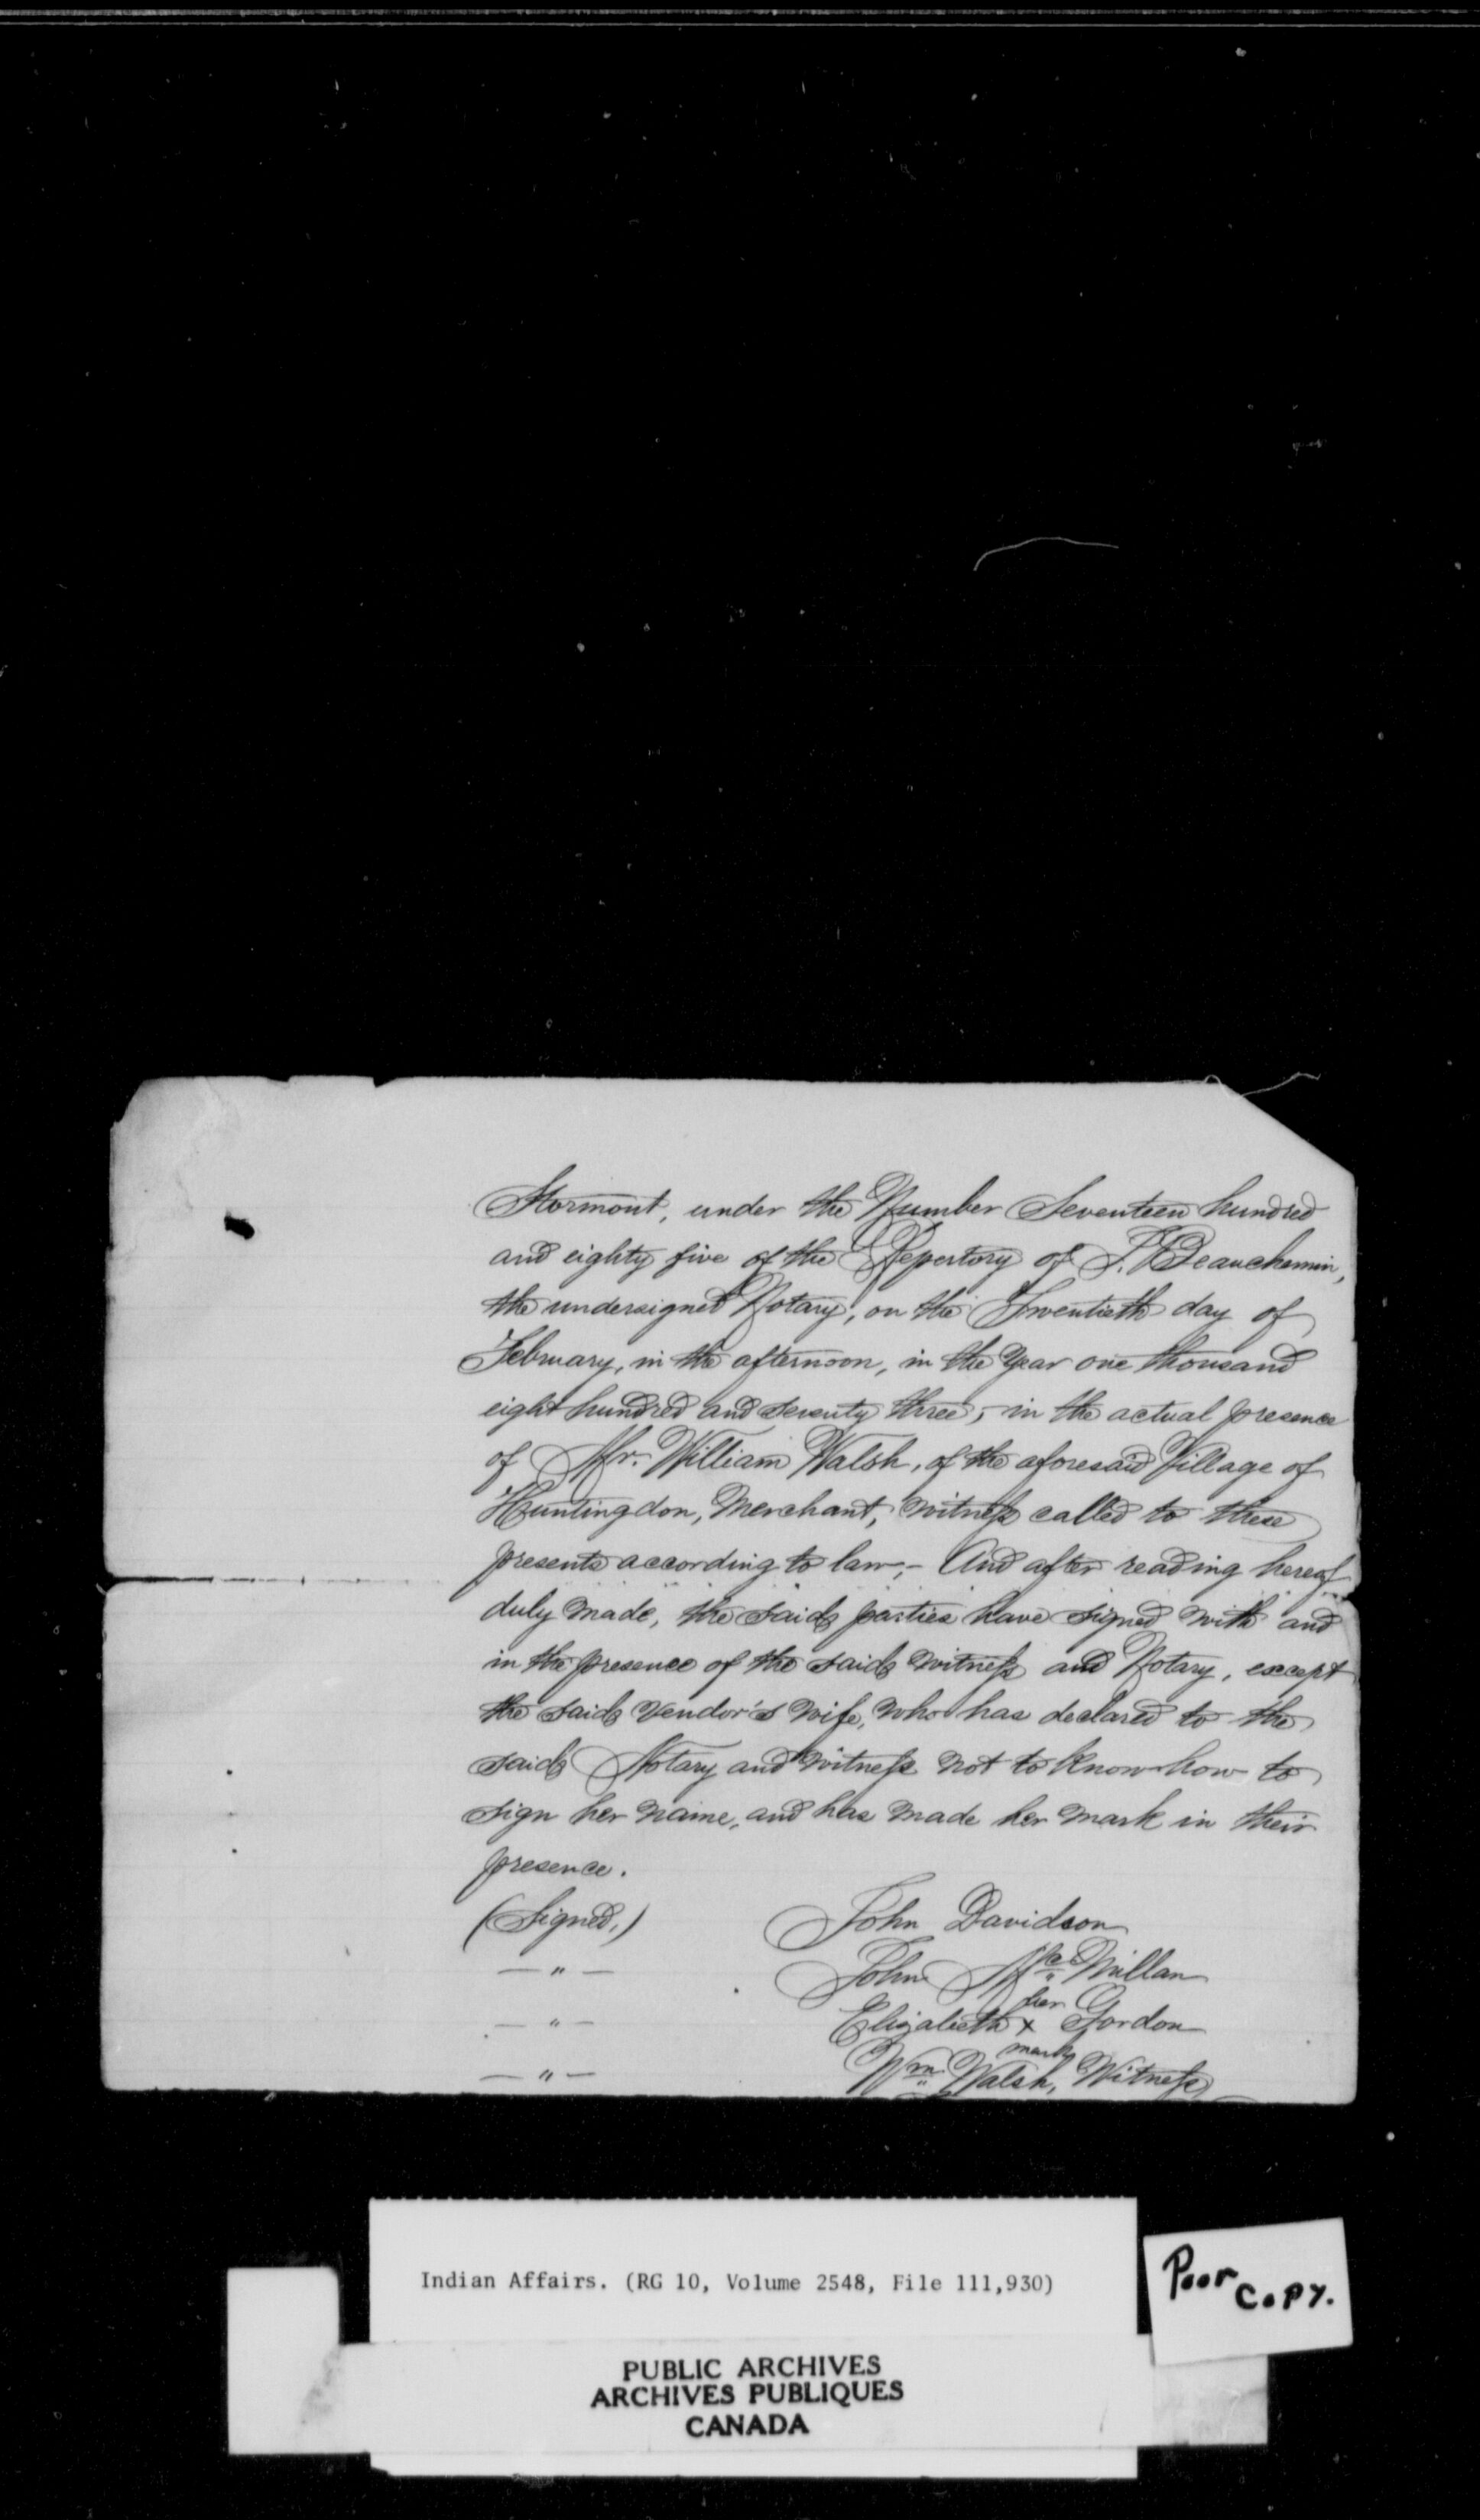 Stormont, under the Number Seventeen hundred
and eighty five of the Repertory of I. I. Beauchemin,
the undersigned Notary, on the Twentieth day of
February, in the afternoon, in the Year one thousand
eight hundred and seventy three,- in the actual presence
of Mr. William Walsh, of the aforesaid Village of
Huntingdon, Merchant, witness called to these
presents according to law;- And after reading hereof
duly made, the said parties have signed with and
in the presence of the said witness and Notary, except
the said Vendor's wife, who has declared to the
said Notary and witness not to know how to
sign her name, and has made her mark in their
presence.
(Signed,) John Davidson
— " — John MacMillan
— " — Elizabeth her x mark Gordon
— " — Wm Walsh, Witness
Indian Affairs. (RG 10, Volume 2548, File 111,930)
Poor Copy.
PUBLIC ARCHIVES
ARCHIVES PUBLIQUES
CANADA